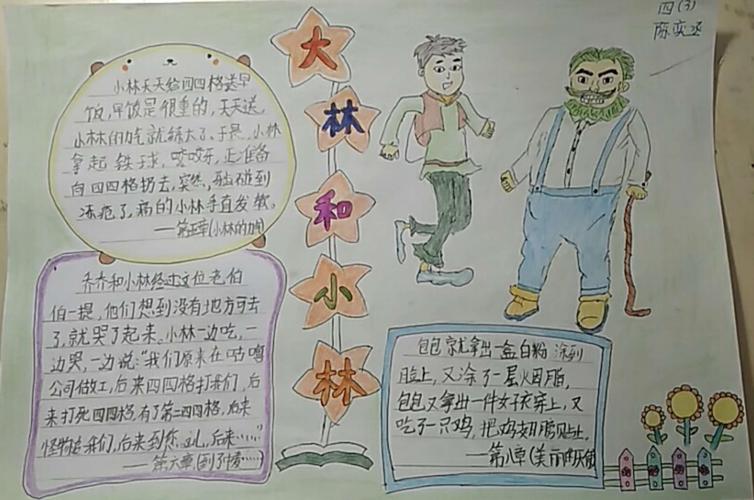 四(3)
陈奕丞
大林和小林
小林天天给四四格送早
饭,早饭是很重的,天天送,
小林的力气就练大了,于是,小林
拿起铁球,咬咬牙,正准备
向四四格扔去,突然,碰到
冻疮了,痛的小林手直发软。
——第五章(小林的
乔乔和小林经过这位老伯
伯一提,他们想到没有地方可去
了,就哭了起来。小林一边吃,一
边哭,一边说:"我们原来在咕噜
公司做工,后来四四格打我们,后
来打死四四格,有了第二四四格,后来
怪物 我们,后来到你 儿,后来……"
——第六章(到了中麦……)
包包就拿出一盒白粉涂到
脸上,又涂了一层火因脂,
包包又拿出一件女子衣穿上,又
吃了一只鸡,把鸡 月旨
——第八章(美丽的天使